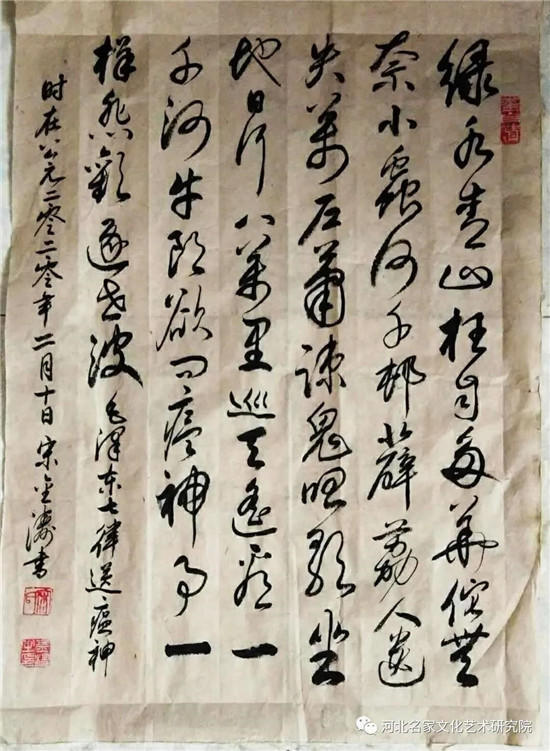 绿水青山枉自多華佗無
奈小蟲何千邨薜荔人遗
失萬户蕭疎鬼唱歌坐
地日行八萬里巡天遥看一
千河牛郎欲问瘟神事一
样悲歡逐逝波 毛泽东七律送瘟神
时在公元二零二零年二月十日宋金涛書
河北名家文化艺术研究院